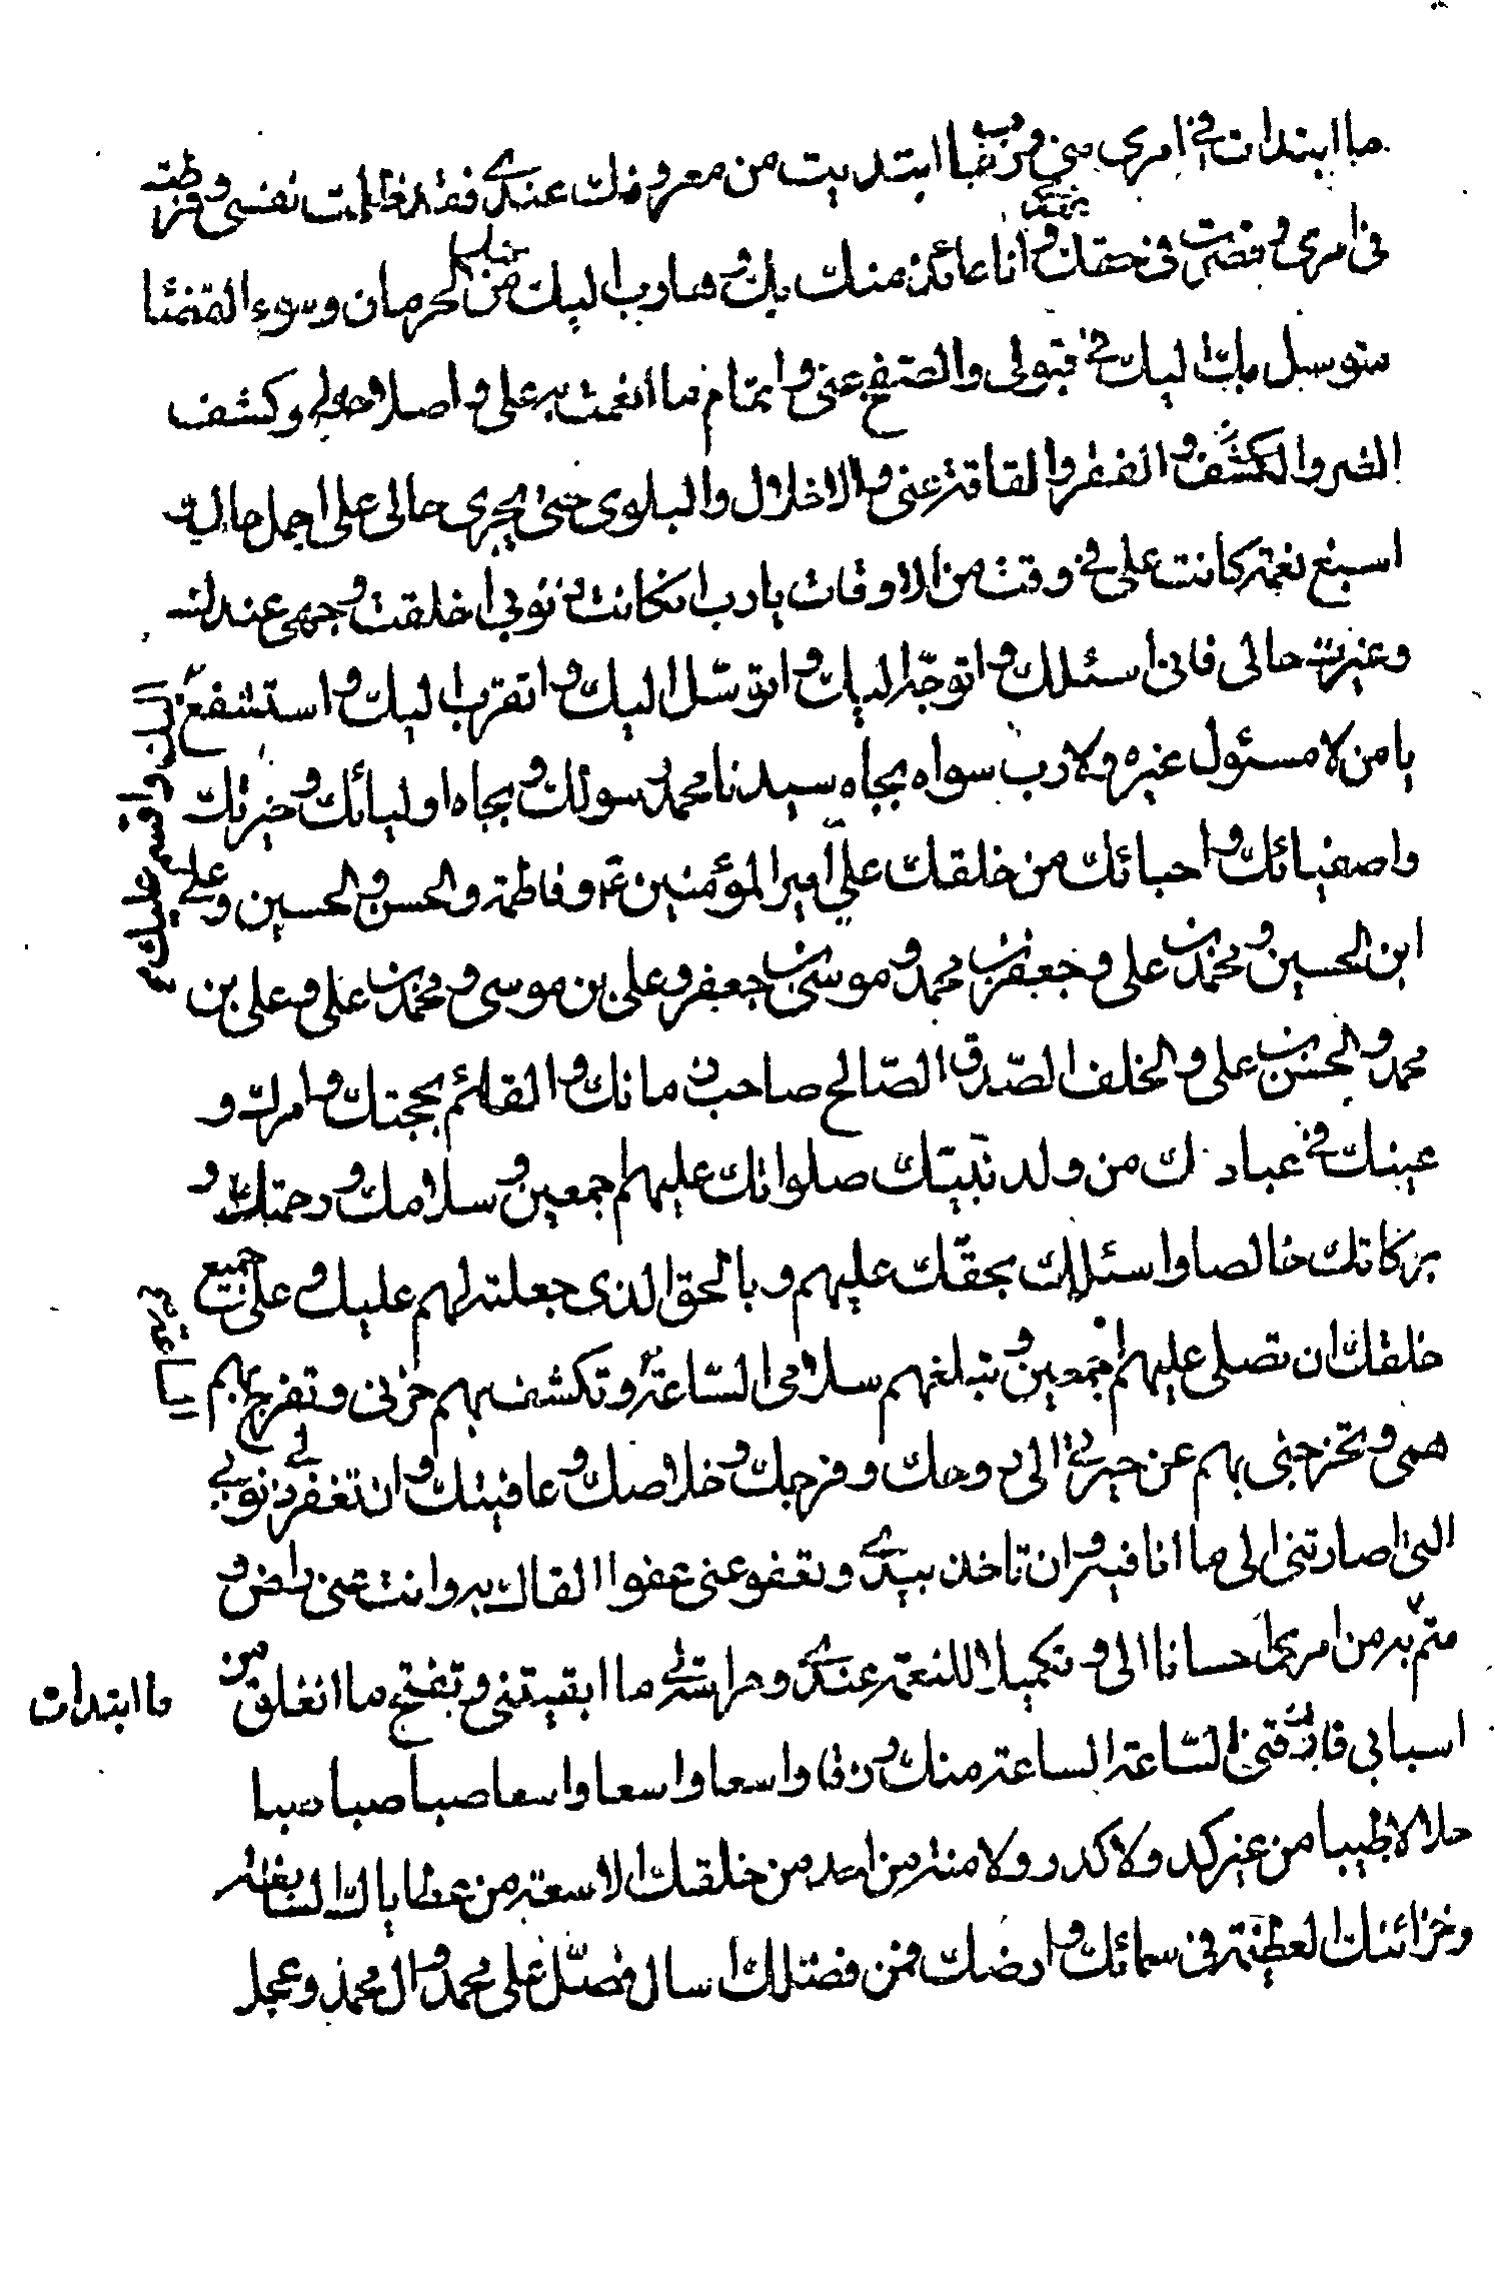 ما ابتدات في امرى منى ومن رب فيما ابتديت من معروفك عندي فقد ظلمت نفسى وفرطت
فى امرى وقصرت فى حقك وانا عائذ منك بك وهارب اليك من الحرمان وسوء القضا
متوسل بك اليك في قبولى والصفح عنى واتمام ما انعمت به على واصلاح حالي وكشف
الضر والكشف والفقر والفاقة عنى والاخلال والبلوى حتى يجرى حالى على اجمل حال و
اسبغ نعمة كانت على في وقت من الاوقات يارب ان كانت ذنوبى اخلقت وجهى عندك
وغيرت حالى فانى اسئلك واتوجه اليك واتوسل اليك واتقرب اليك واستشفع
اليك واقسم عليك
يا من لا مسئول غيره ولا رب سواه بجاه سيدنا محمد رسولك وبجاه اوليائك وخيرتك
واصفيائك واحبائك من خلقك علي امير المؤمنين وفاطمة والحسن والحسين وعلي
ابن الحسين ومحمد بن على وجعفر بن محمد وموسى بن جعفر وعلى بن موسى ومحمد بن على وعلى بن
محمد والحسن بن على والخلف الصدق الصالح صاحب زمانك والقائم بحجتك وامرك و
عينك في عبادك من ولد نبيك صلواتك عليهم اجمعين وسلامك ورحمتك و
بركاتك خالصا واسئلك بحقك عليهم وبالحق الذى جعلته لهم عليك وعلى جميع
خلقك ان تصلى عليهم اجمعين وتبلغهم سلامى الساعة وتكشف بهم حزنى وتفرج بهم
الساعة
همى وتخرجنى بهم عن حيرتي الى روحك وفرجك وخلاصك وعافيتك وان تغفر لي ذنوبي
التى اصارتنى الى ما انا فيه وان تاخذ بيدي وتعفو عنى عفوا القاك به وانت عنى راض و
متم به من امرى احسانا الى وتكميلا للنعمة عندي وحراسة لي ما ابقيتنى وتفتح ما انغلق من
ما ابتدات
اسبابى فارزقنى الساعة الساعة منك رزقا واسعا واسعا واسعا صبا صبا صبا
حلالا طيبا من غير كد ولا كدر ولا منة من احد من خلقك الا سعة من عطاياك السابغة
وخزائنك العظيمة فى سمائك وارضك فمن فضلك اسال فصل على محمد وال محمد وعجل